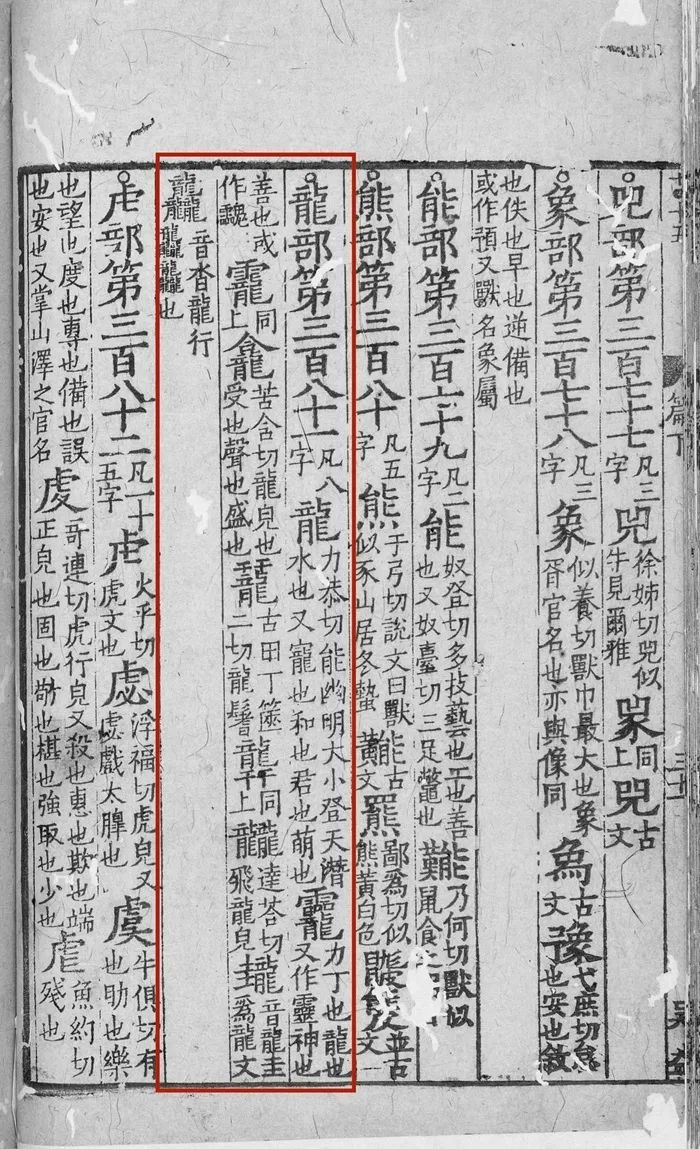 兕部第三百七十七凡三字兕徐姊切兕似牛見爾雅同上兕古文
象部第三百七十八凡三字象似養切獸巾最大也象胥官名也亦與像同古文豫弋庶切怠也安也敘
也佚也早也逆備也或作預又獸名象屬
能部第三百七十九凡二字能奴登切多技藝也工也善也又奴臺切三足鼈也乃何切獸似鼠食之
熊部第三百八十凡五字熊于弓切說文曰獸似豕山居冬蟄古文羆鄙為切似熊黃白色並古文
龍部第三百八十一凡八字龍力恭切能幽明大小登天潛水也又寵也和也君也萌也龗力丁也龍也又作靈神也
善也或作靇同上龕苦含切龍皃也受也聲也盛也古田丁篋二切龍鬐同上龖達荅切飛龍皃音龍圭為龍文
龘音沓龍行龘龘也
虍部第三百八十二凡一十五字虍火乎切虎文也虙浮福切虎皃又虙戲太臯也虞牛俱切有也助也樂
也望也度也專也備也誤也安也又掌山澤之官名虔奇連切虎行皃又殺也惠也欺也端正皃也固也也椹也強取也少也虐魚約切殘也
篇下
三十一